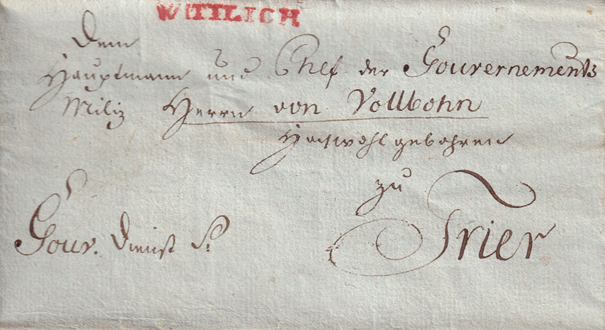 WITTLICH
Dem
Hauptmann und Chef der Gouvernements
Miliz Herrn von Vollbohn
Hochwohlgebohren
zu
Trier
Gouv. Dienst S.